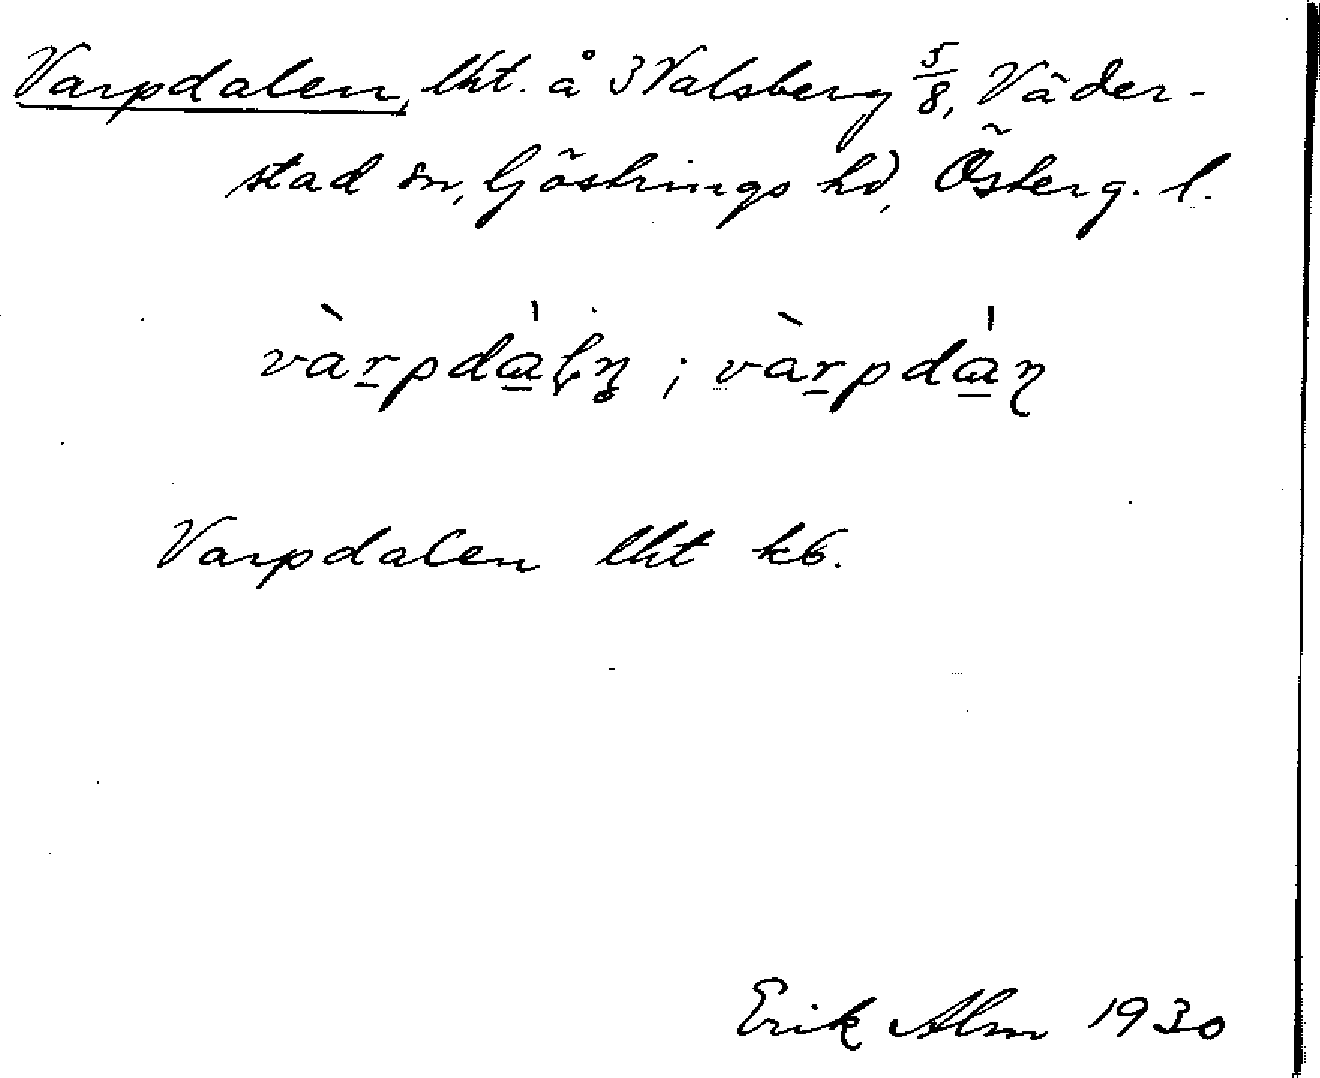 Varpdalen, lht. å 3 Valsberg 5/8, Väder-
stad sn, Göstrings hd, Österg. l.
vàr̠pda̠̍ln̥ ; vàr̠pda̠̍n
Varpdalen lht kb.
Erik Alm 1930